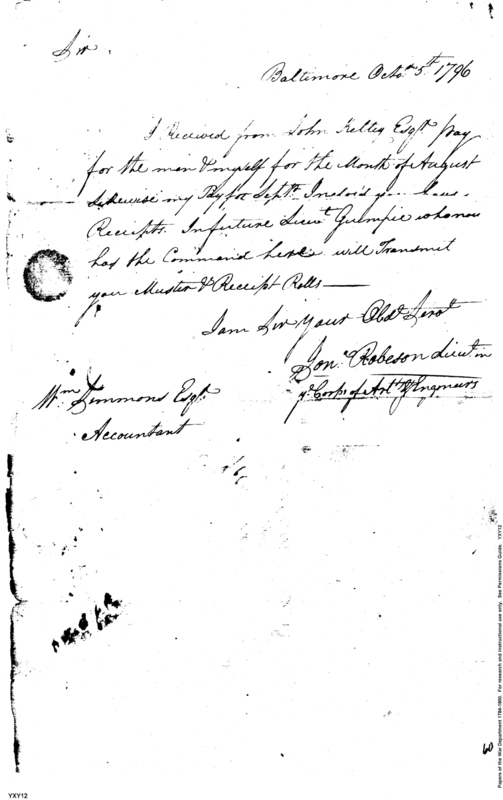 Sir.
Baltimore Octor. 5th 1796
I Received from John Kelty Esqr pay
for the men & myself for the Month of August
Likewise my Pay for Septr. Inclos'd you have
Receipts. In future Lieut Gumpie who now
has the Command here will Transmit
you Muster & Receipt Rolls —
I am Sir Your Obdt Servt
Robeson Lieut in
ye Corps of Artt & Engineers
Wm Simmons Esqr.
Accountant
60
Papers of the War Department 1784-1800. For research and instructional use only. See Permissions Guide. YXY12
YXY12